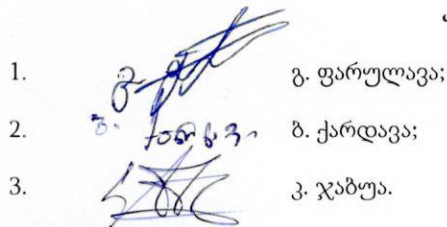 1. გ. ფარულავა;
2. ბ. ქარდავა;
3. კ. ჯაბუა.